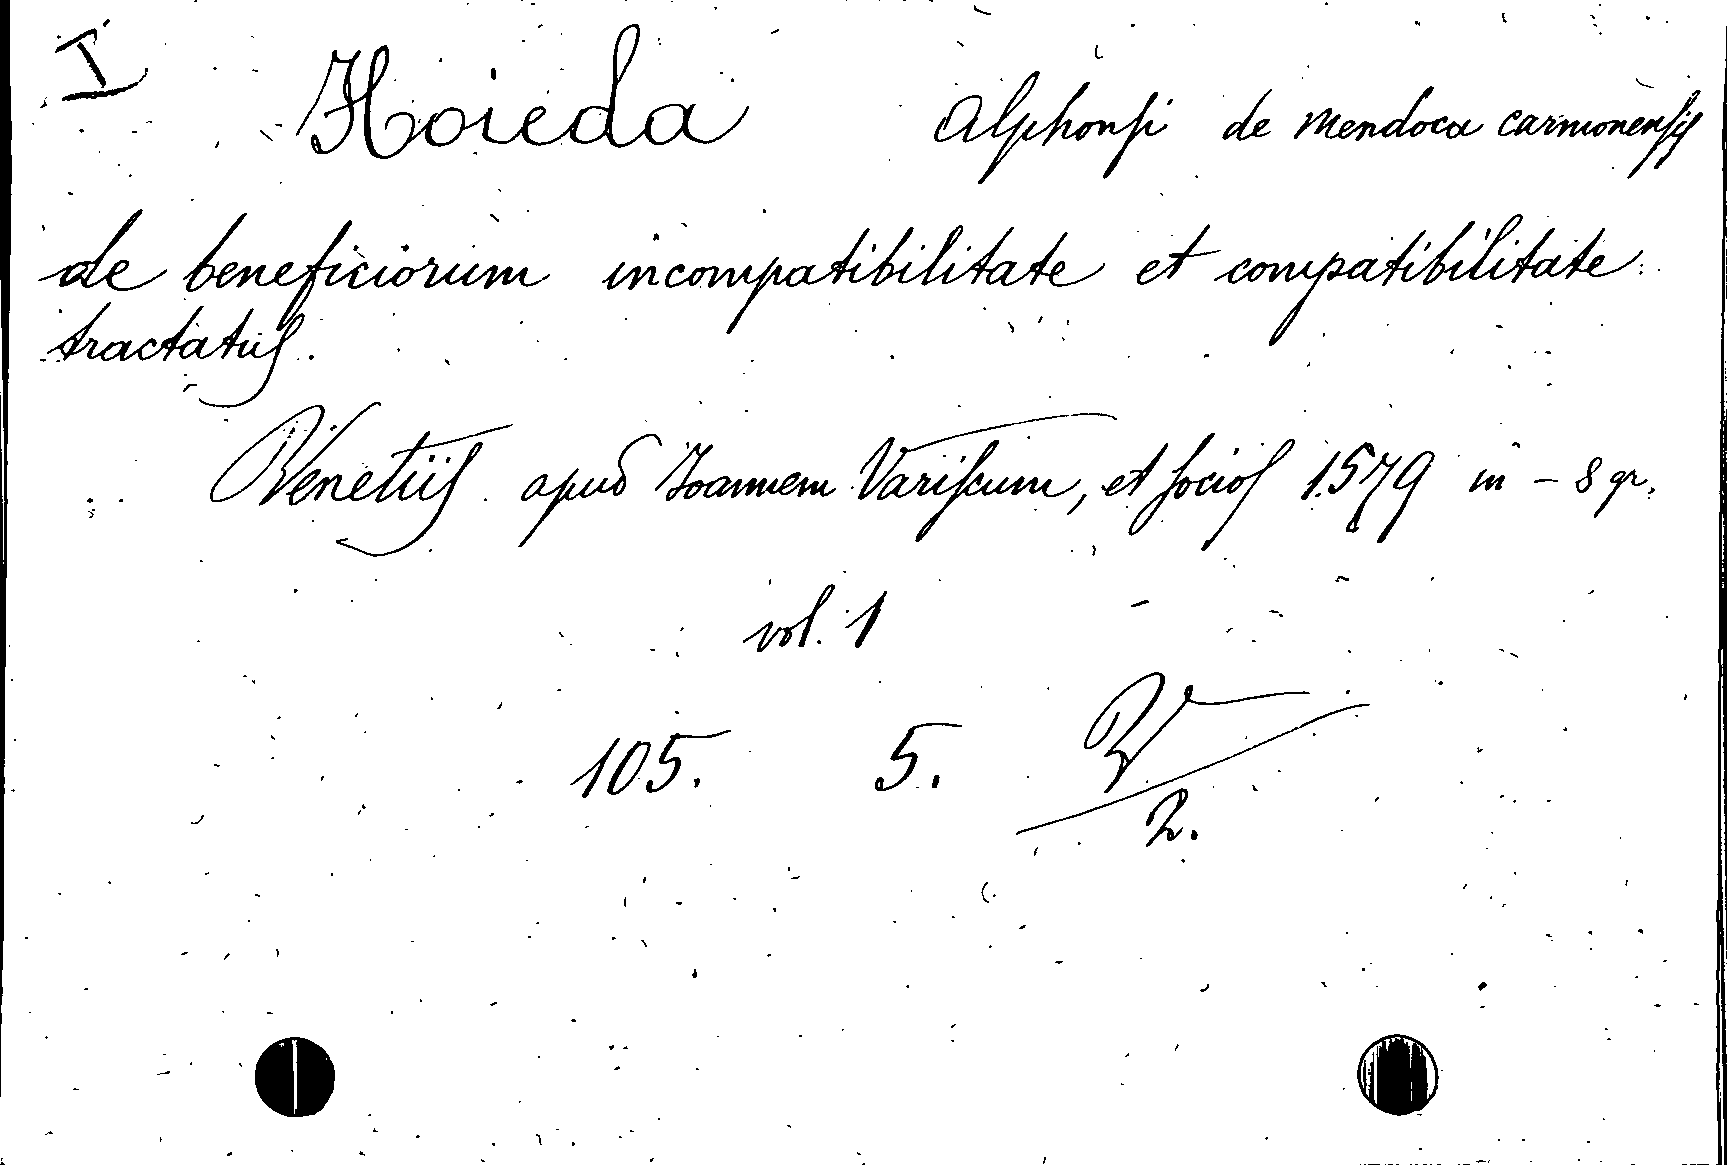 I Hoieda Alphonsi de Mendoca carmonensis
de beneficiorum incompatibilitate et compatibilitate
tractatus.
Venetiis apud Joannem Variscum, et socios 1579 in - 8 gr.
vol. 1
105. 5. V/2.